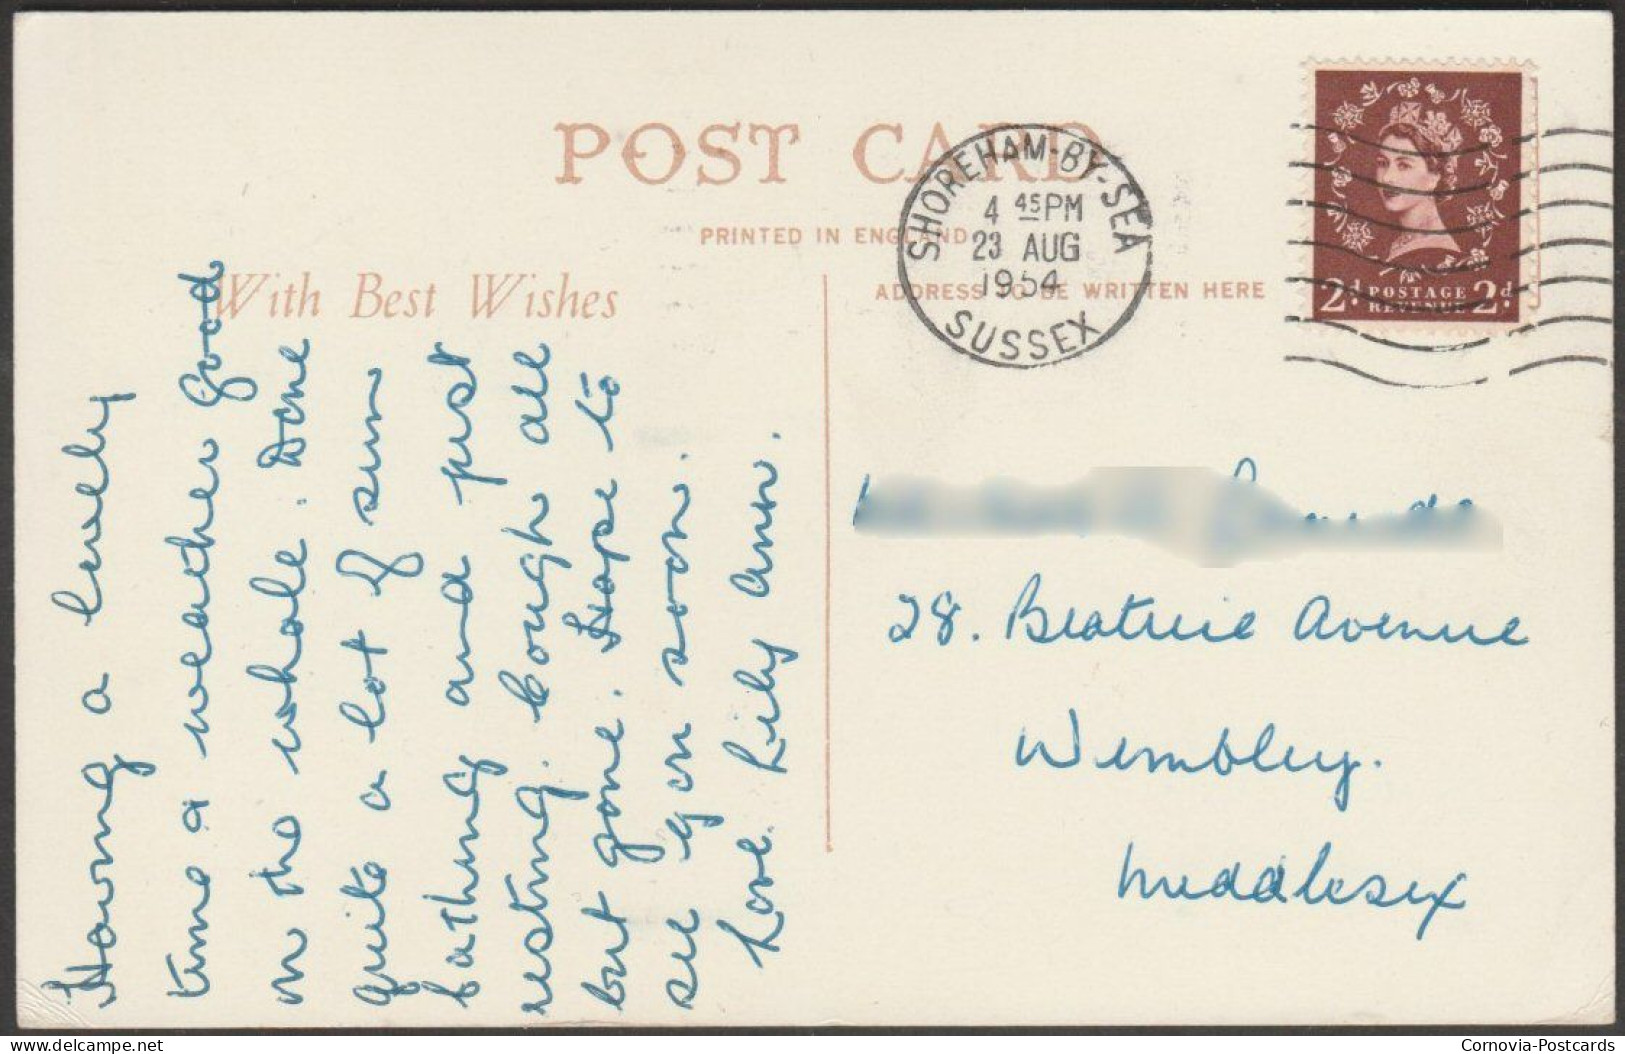 POST CARD
PRINTED IN ENGLAND
With Best Wishes
ADDRESS TO BE WRITTEN HERE
SHOREHAM-BY-SEA
4 45PM
23 AUG
1954
SUSSEX
2d. POSTAGE 2d.
REVENUE
Having a lovely
time & weather good
on the whole. Done
quite a lot of sun
bathing and just
resting. Cough all
but gone. Hope to
see you soon.
Love Lily Ann.
28. Beatrice Avenue
Wembley.
Middlesex
Cornovia-Postcards
delcampe.net